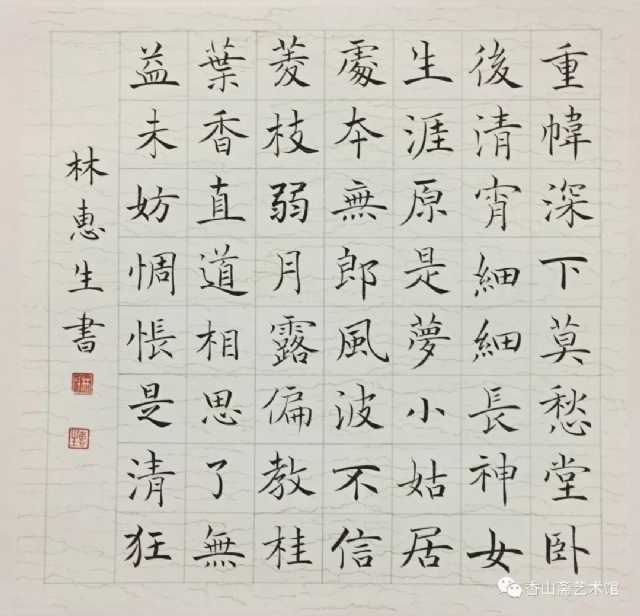 重幃深下莫愁堂卧
後清宵細細長神女
生涯原是夢小姑居
處本無郎風波不信
菱枝弱月露偏教桂
葉香直道相思了無
益未妨惆悵是清狂
林惠生書
香山斋艺术馆